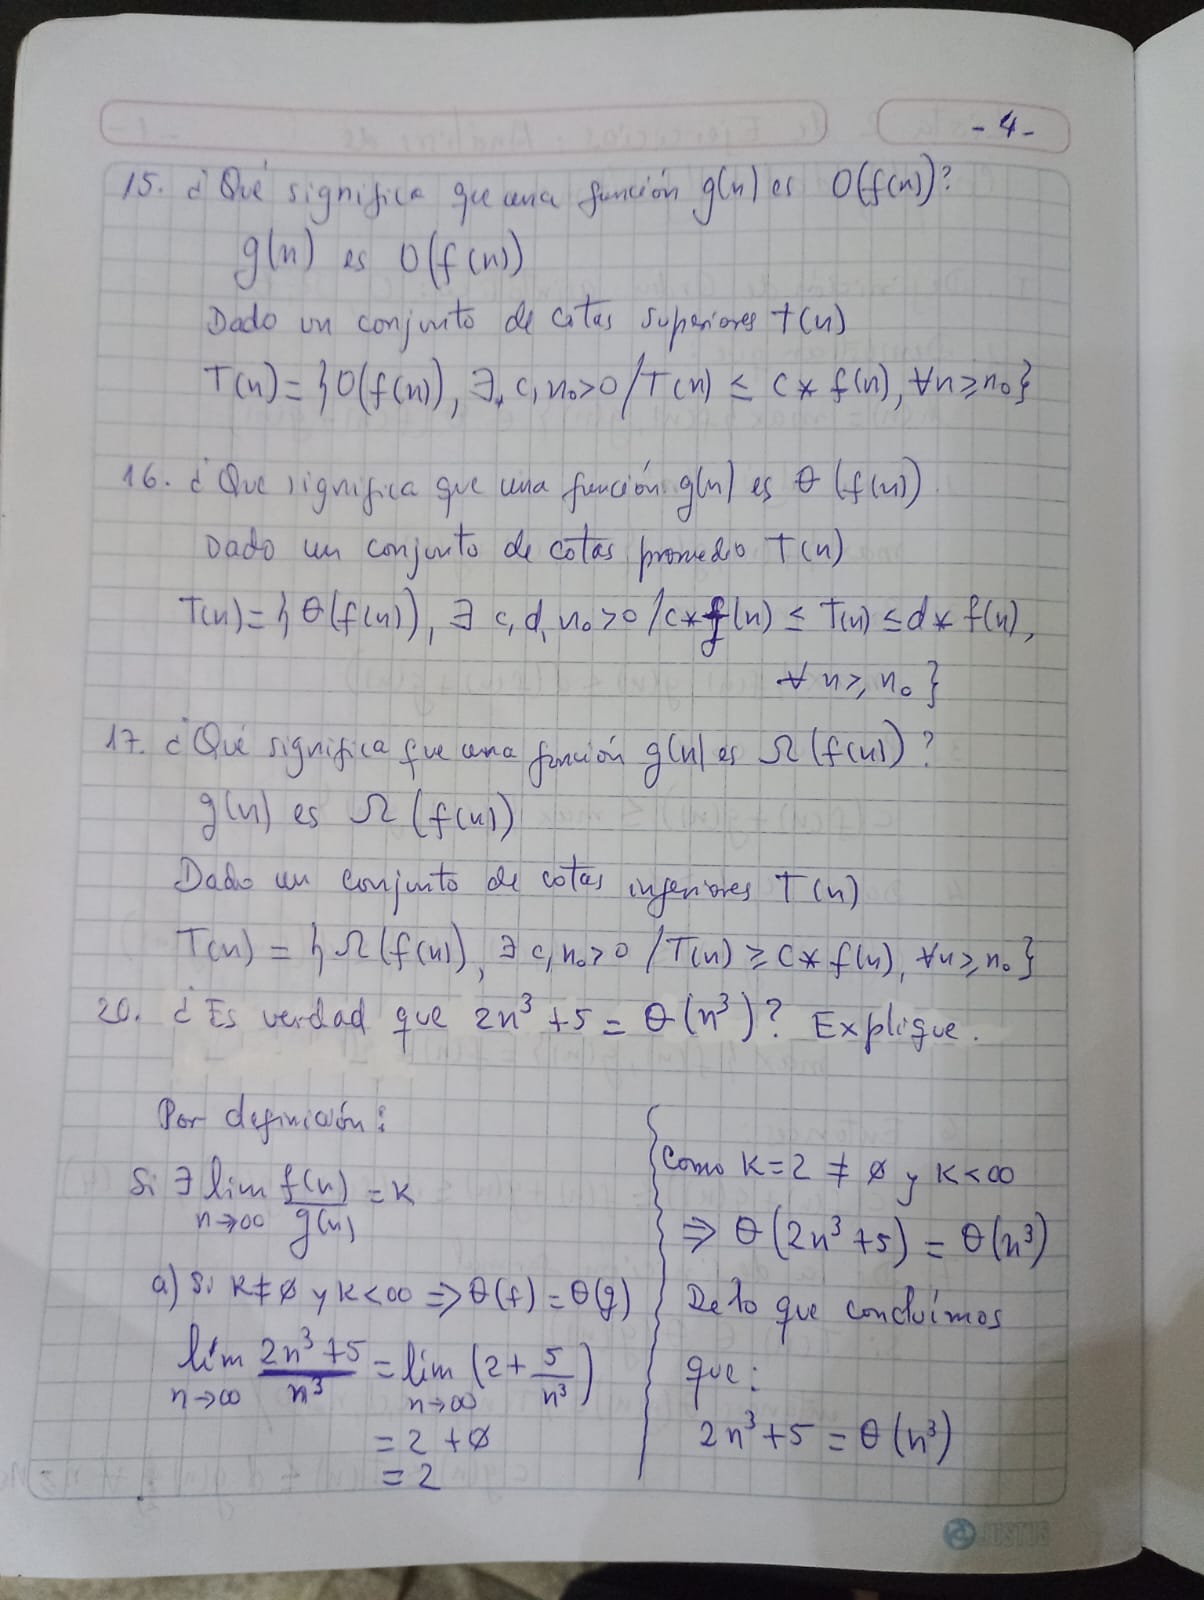 -4-
15. ¿Qué significa que una función g(n) es O(f(n))?
g(n) es O(f(n))
Dado un conjunto de cotas superiores T(n)
T(n) = {O(f(n)), ∃ c, n₀>0 / T(n) ≤ c * f(n), ∀n≥n₀}
16. ¿Que significa que una función g(n) es θ(f(n)).
Dado un conjunto de cotas promedio T(n)
T(n) = {θ(f(n)), ∃ c, d, n₀>0 / c*f(n) ≤ T(n) ≤ d * f(n),
∀ n≥n₀}
17. ¿Qué significa que una función g(n) es Ω(f(n))?
g(n) es Ω(f(n))
Dado un conjunto de cotas inferiores T(n)
T(n) = {Ω(f(n)), ∃ c, n₀>0 / T(n) ≥ c * f(n), ∀n≥n₀}
20. ¿Es verdad que 2n³+5 = θ(n³)? Explique.
Por definición:
Si ∃ lim n→∞ f(n)/g(n) = k
a) Si k≠0 y k<∞ ⇒ θ(f) = θ(g)
lím n→∞ (2n³+5)/n³ = lím n→∞ (2 + 5/n³)
= 2 + 0
= 2
Como k=2 ≠ 0 y k<∞
⇒ θ(2n³+5) = θ(n³)
De lo que concluímos
que:
2n³+5 = θ(n³)
JUSTUS